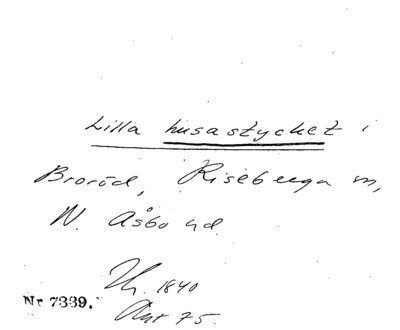 Lilla husastycket i
Broröd, Riseberga sn,
N. Åsbo hd.
Lh. 1840
Akt 75.
Nr 7339.